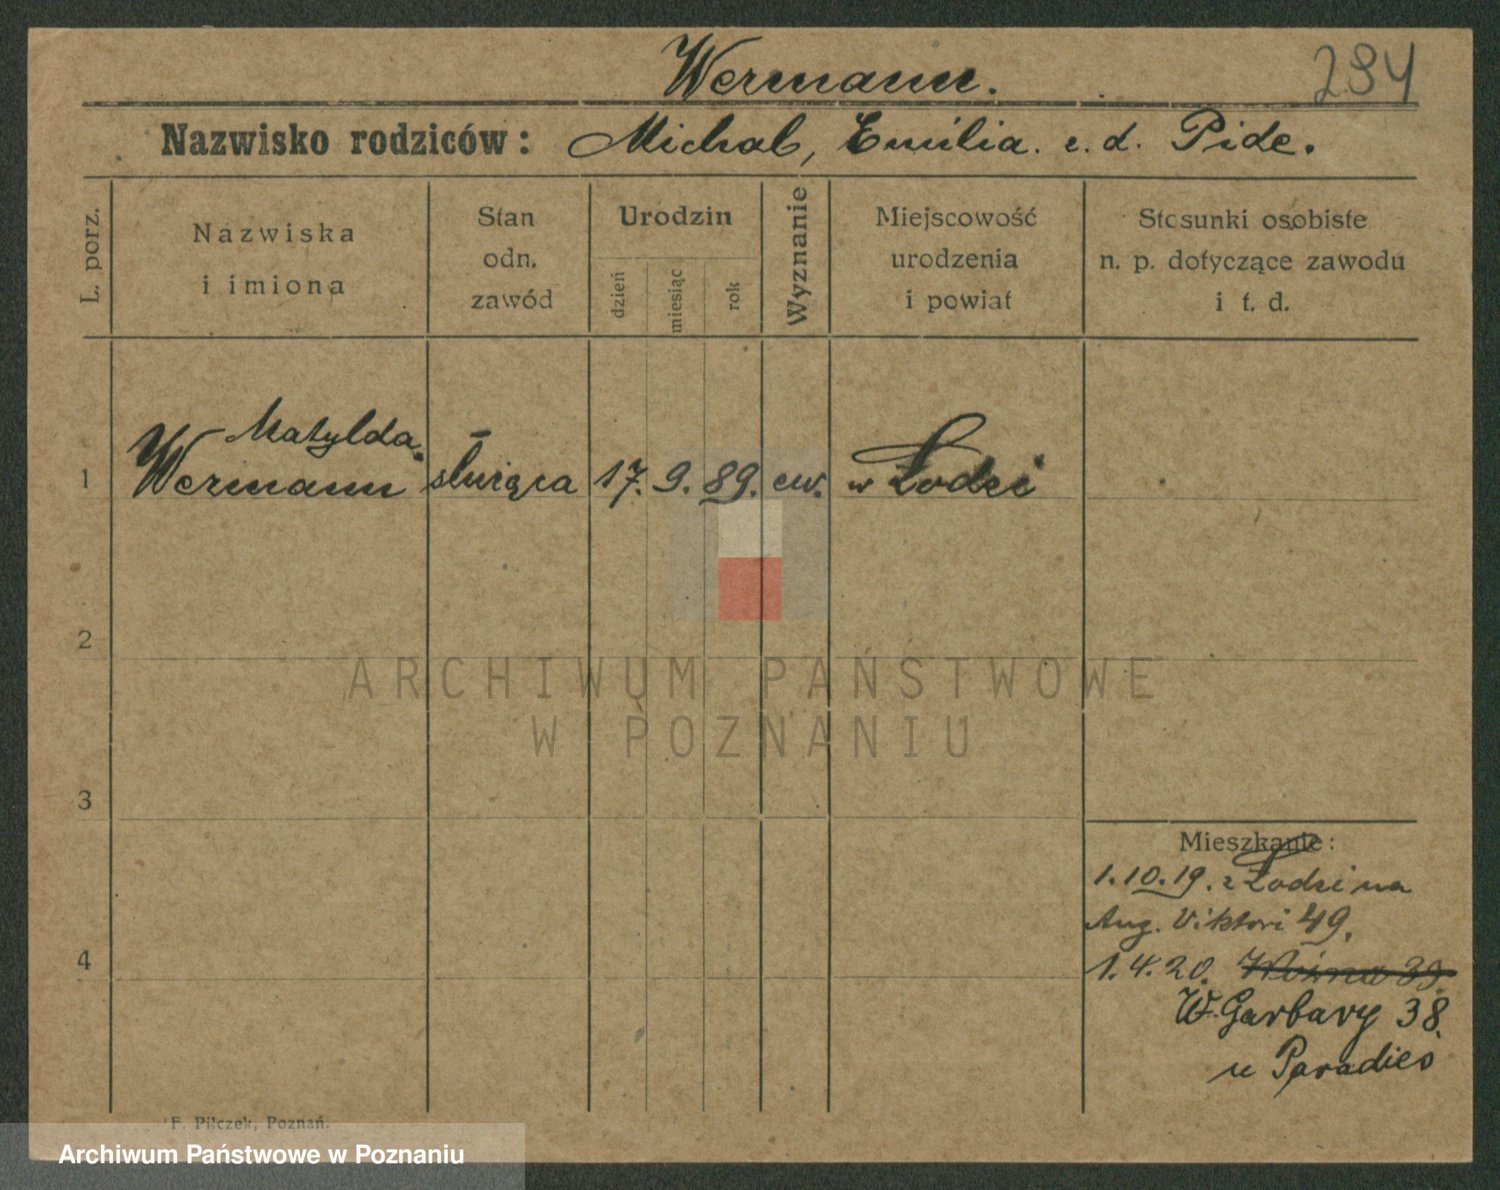 Wermann.
294
Nazwisko rodziców: Michał, Emilia z. d. Pide.
L. porz.
Nazwiska
i imiona
Stan
odn.
zawód
Urodzin
dzień
miesiąc
rok
Wyznanie
Miejscowość
urodzenia
i powiat
Stosunki osobiste
n. p. dotyczące zawodu
i t. d.
Matylda
1 Wermann służąca 17. 9. 89. ew. w Łodzi
2
ARCHIWUM PAŃSTWOWE
W POZNANIU
3
Mieszkanie:
1.10.19. z Łodzi na
Aug. Viktori 49.
4
1.4.20. Woźna 39.
W. Garbary 38.
u Paradies
F. Pilczek, Poznań.
Archiwum Państwowe w Poznaniu